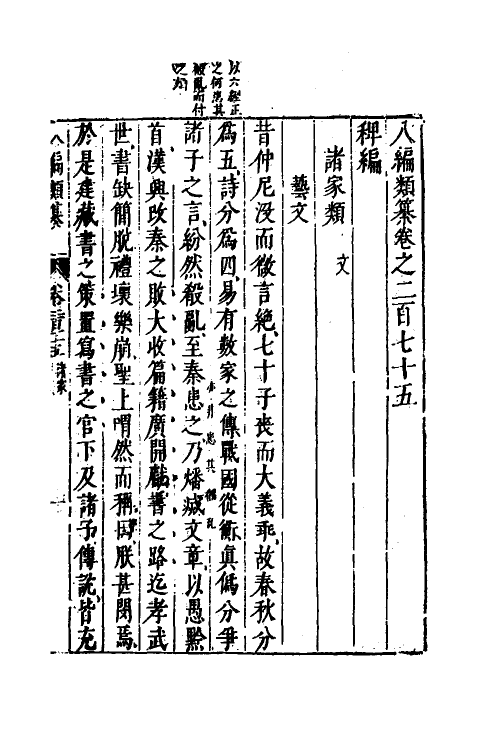 八編類纂卷之二百七十五
稗編
諸家類 文
藝文
昔仲尼没而微言絶七十子喪而大義乖故春秋分
爲五詩分爲四易有數家之傳戰國從衡真僞分爭
諸子之言紛然殽亂至秦患之乃燔滅文章以愚黔
首漢興改秦之敗大收篇籍廣開獻書之路迄孝武
世書缺簡脫禮壞樂崩聖上喟然而稱曰朕甚閔焉
於是建藏書之策置寫書之官下及諸子傳說皆充
以六經正
之何患其
殽亂而付
之火
亦非患其殽亂